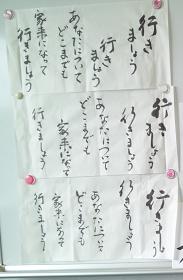 行き
ましょう
行き
ましょう
あなたについて
どこまでも
家来になって
行きましょう
行き
ましょう
行きましょう
あなたについて
どこまでも
家来になって
行きましょう
行き
ましょう
行きましょう
あなたについて
どこまでも
家来になって
行きましょう